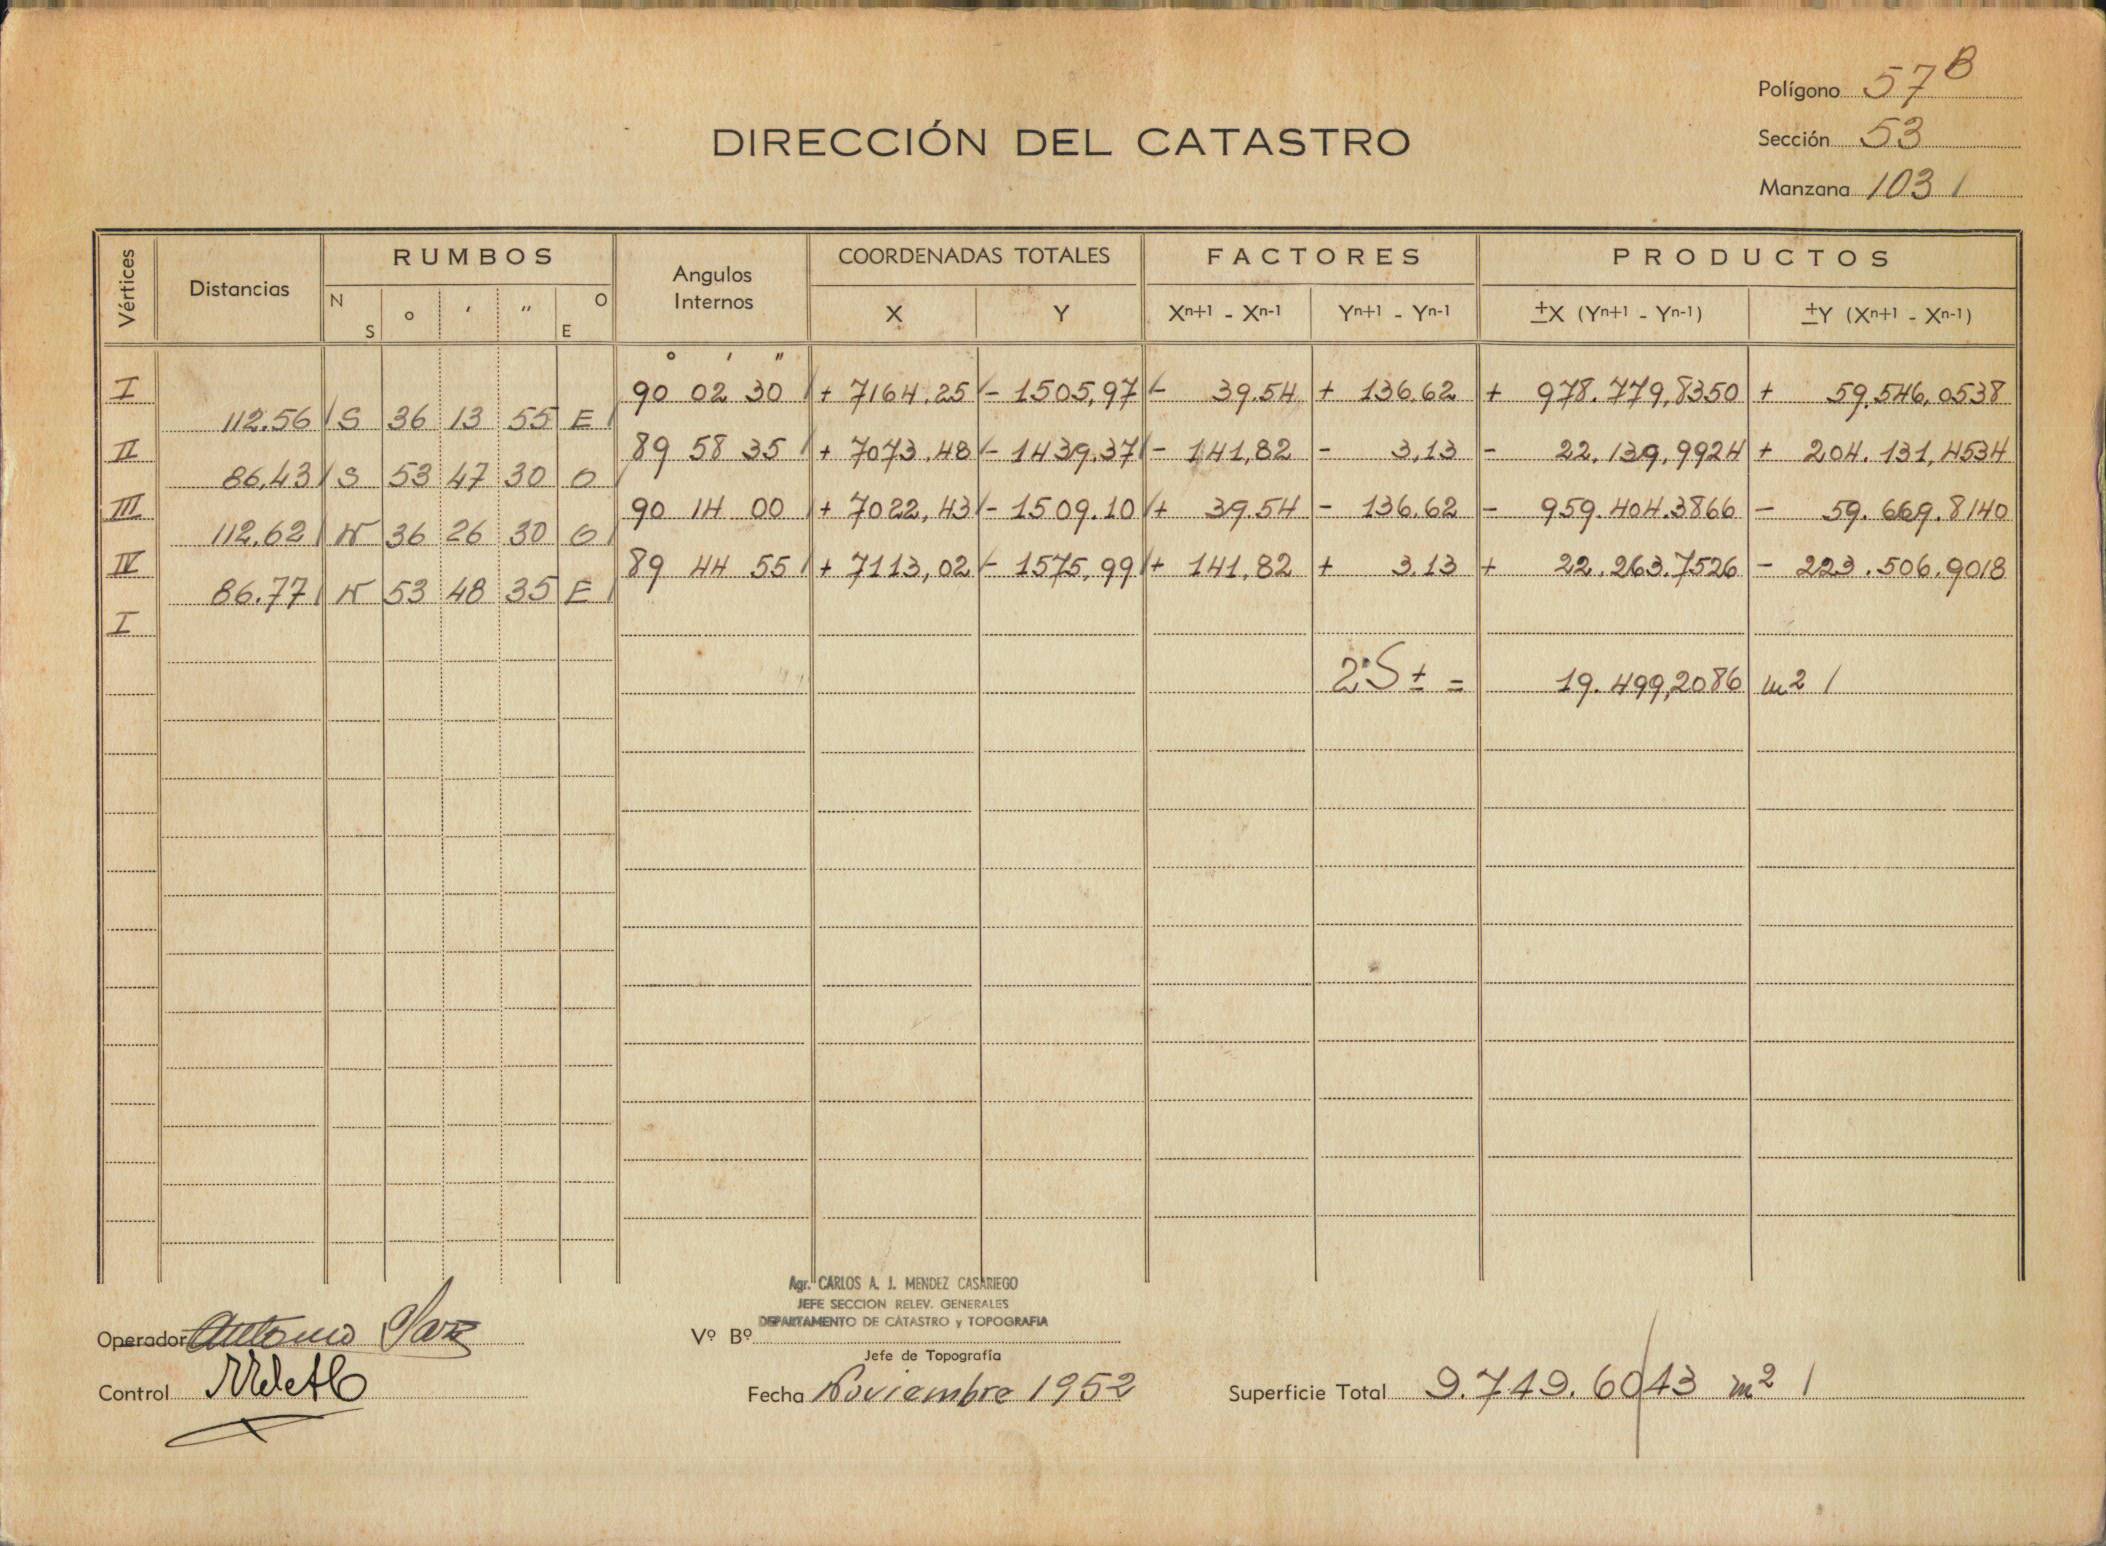 Polígono 57 B
DIRECCIÓN DEL CATASTRO
Sección 53
Manzana 1031
Vértices Distancias RUMBOS Angulos Internos COORDENADAS TOTALES FACTORES PRODUCTOS
N S o ' " O E X Y Xn+1 - Xn-1 Yn+1 - Yn-1 ±X (Yn+1 - Yn-1) ±Y (Xn+1 - Xn-1)
o ' "
I 90 02 30 + 7164.25 - 1505,97 - 39.54 + 136.62 + 978.779,8350 + 59.546,0538
112.56 S 36 13 55 E
II 89 58 35 + 7073.48 - 1439.37 - 141,82 - 3,13 - 22.139,9924 + 204.131,4534
86,43 S 53 47 30 O
III 90 14 00 + 7022,43 - 1509.10 + 39.54 - 136.62 - 959.404.3866 - 59.669.8140
112.62 N 36 26 30 O
IV 89 44 55 + 7113,02 - 1575,99 + 141,82 + 3.13 + 22.263.7526 - 223.506.9018
86.77 N 53 48 35 E
I
2S ± = 19.499,2086 m2
Agr. CARLOS A. J. MENDEZ CASARIEGO
JEFE SECCION RELEV. GENERALES
DEPARTAMENTO DE CATASTRO y TOPOGRAFIA
Operador Antonio
Vº Bº
Jefe de Topografía
Control
Fecha Noviembre 1952
Superficie Total 9.749.6043 m2